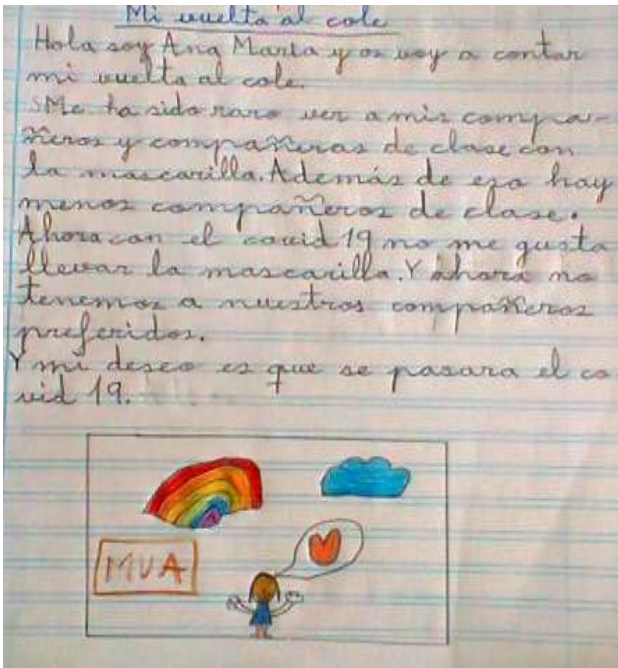 Mi vuelta al cole
Hola soy Ana María y os voy a contar
mi vuelta al cole.
Me ha sido raro ver a mis compa-
ñeros y compañeras de clase con
la mascarilla. Además de eso hay
menos compañeros de clase.
Ahora con el covid 19 no me gusta
llevar la mascarilla. Y ahora no
tenemos a nuestros compañeros
preferidos.
Y mi deseo es que se pasara el co
vid 19.
MVA